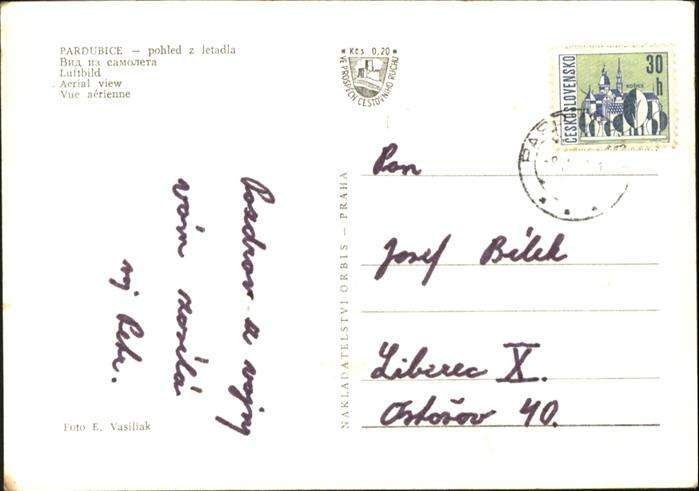 PARDUBICE — pohled z letadla
Вид из самолета
Luftbild
Aerial view
Vue aérienne
Kčs 0,20
VE PROSPĚCH CESTOVNÍHO RUCHU
ČESKOSLOVENSKO
30 h
Pozdrav z vojny
vám zasílá
Petr.
NAKLADATELSTVÍ ORBIS — PRAHA
Pan
Josef Bílek
Liberec X.
Ostašov 40.
Foto E. Vasiliak